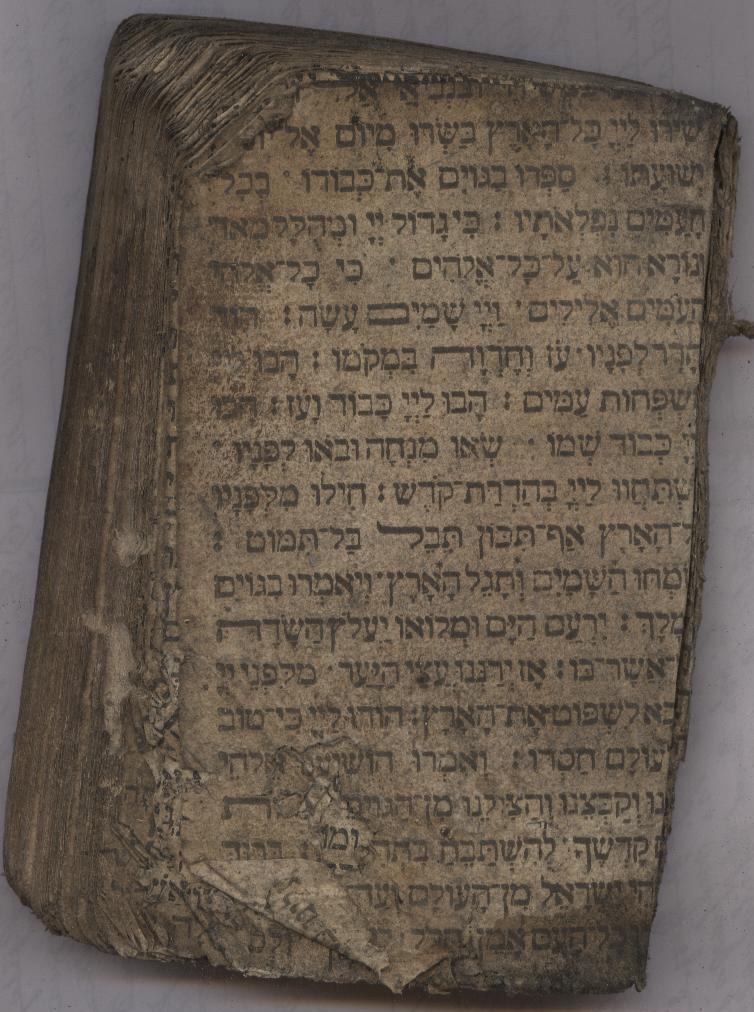 ובנביאי אל
שִׁירוּ לַייָ כׇּל־הָאָרֶץ בַּשְּׂרוּ מִיּוֹם אֶל־
יְשׁוּעָתוֹ : סַפְּרוּ בַגּוֹיִם אֶת־כְּבוֹדוֹ · בְּכׇל־
הָעַמִּים נִפְלְאֹתָיו : כִּי גָדוֹל יְיָ וּמְהֻלָּל מְאֹד
וְנוֹרָא הוּא עַל־כׇּל־אֱלֹהִים · כִּי כׇּל־אֱלֹהֵי
הָעַמִּים אֱלִילִים · וַייָ שָׁמַיִם עָשָׂה : הוֹד
וְהָדָר לְפָנָיו · עֹז וְחֶדְוָה בִּמְקֹמוֹ : הָבוּ לַייָ
מִשְׁפְּחוֹת עַמִּים : הָבוּ לַייָ כָּבוֹד וָעֹז : הָבוּ
כְּבוֹד שְׁמוֹ · שְׂאוּ מִנְחָה וּבֹאוּ לְפָנָיו ·
הִשְׁתַּחֲווּ לַייָ בְּהַדְרַת־קֹדֶשׁ : חִילוּ מִלְּפָנָיו
הָאָרֶץ אַף־תִּכּוֹן תֵּבֵל בַּל־תִּמּוֹט :
יִשְׂמְחוּ הַשָּׁמַיִם וְתָגֵל הָאָרֶץ · וְיֹאמְרוּ בַגּוֹיִם
מָלָךְ : יִרְעַם הַיָּם וּמְלוֹאוֹ יַעֲלֹץ הַשָּׂדֶה
אֲשֶׁר־בּוֹ : אָז יְרַנְּנוּ עֲצֵי הַיָּעַר · מִלִּפְנֵי יְיָ
בָא לִשְׁפּוֹט אֶת־הָאָרֶץ : הוֹדוּ לַייָ כִּי־טוֹב
לְעוֹלָם חַסְדּוֹ : וְאִמְרוּ הוֹשִׁיעֵנוּ אֱלֹהֵי
וְקַבְּצֵנוּ וְהַצִּילֵנוּ מִן־הַגּוֹיִם
קׇדְשֶׁךָ · לְהִשְׁתַּבֵּחַ : בָּרוּךְ
יִשְׂרָאֵל מִן־הָעוֹלָם וְעַד
כׇל־הָעָם אָמֵן